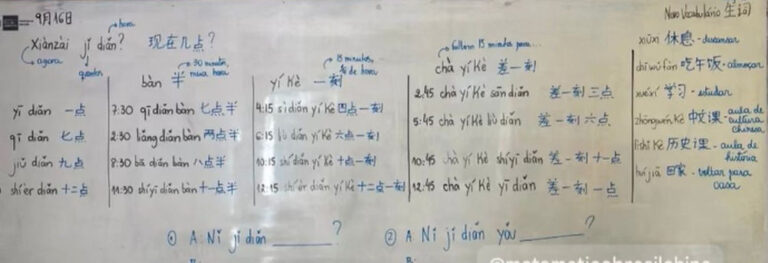 9月16日
hora
Xiànzài jǐ diǎn? 现在几点?
agora
quantos
yī diǎn 一点
qī diǎn 七点
jiǔ diǎn 九点
shí'èr diǎn 十二点
30 minutos,
meia hora
bàn 半
7:30 qī diǎn bàn 七点半
2:30 liǎng diǎn bàn 两点半
8:30 bā diǎn bàn 八点半
11:30 shíyī diǎn bàn 十一点半
15 minutos,
¼ de hora
yí kè 一刻
4:15 sì diǎn yí kè 四点一刻
6:15 liù diǎn yí kè 六点一刻
10:15 shí diǎn yí kè 十点一刻
12:15 shí'èr diǎn yí kè 十二点一刻
faltam 15 minutos para...
chà yí kè 差一刻
2:45 chà yí kè sān diǎn 差一刻三点
5:45 chà yí kè liù diǎn 差一刻六点
10:45 chà yí kè shíyī diǎn 差一刻十一点
12:45 chà yí kè yī diǎn 差一刻一点
Novo Vocabulário 生词
xiūxi 休息 - descansar
chī wǔfàn 吃午饭 - almoçar
xuéxí 学习 - estudar
zhōngwén kè 中文课 - aula de
cultura
chinesa
lìshǐ kè 历史课 - aula de
história
huí jiā 回家 - voltar para
casa
① A: Nǐ jǐ diǎn ______?
② A: Nǐ jǐ diǎn yǒu ______?